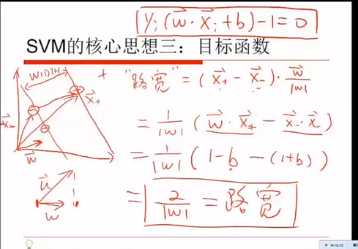 yᵢ(w⃗·x⃗ᵢ+b)-1=0
SVM的核心思想三：目标函数
WIDTH
+
x⃗₊
x⃗₋
w⃗
"路宽" = (x⃗₊ - x⃗₋)·w⃗/|w|
= 1/|w| (w⃗·x⃗₊ - x⃗₋·x⃗)
= 1/|w| (1-b - (1+b))
= 2/|w| = 路宽
u⃗
w